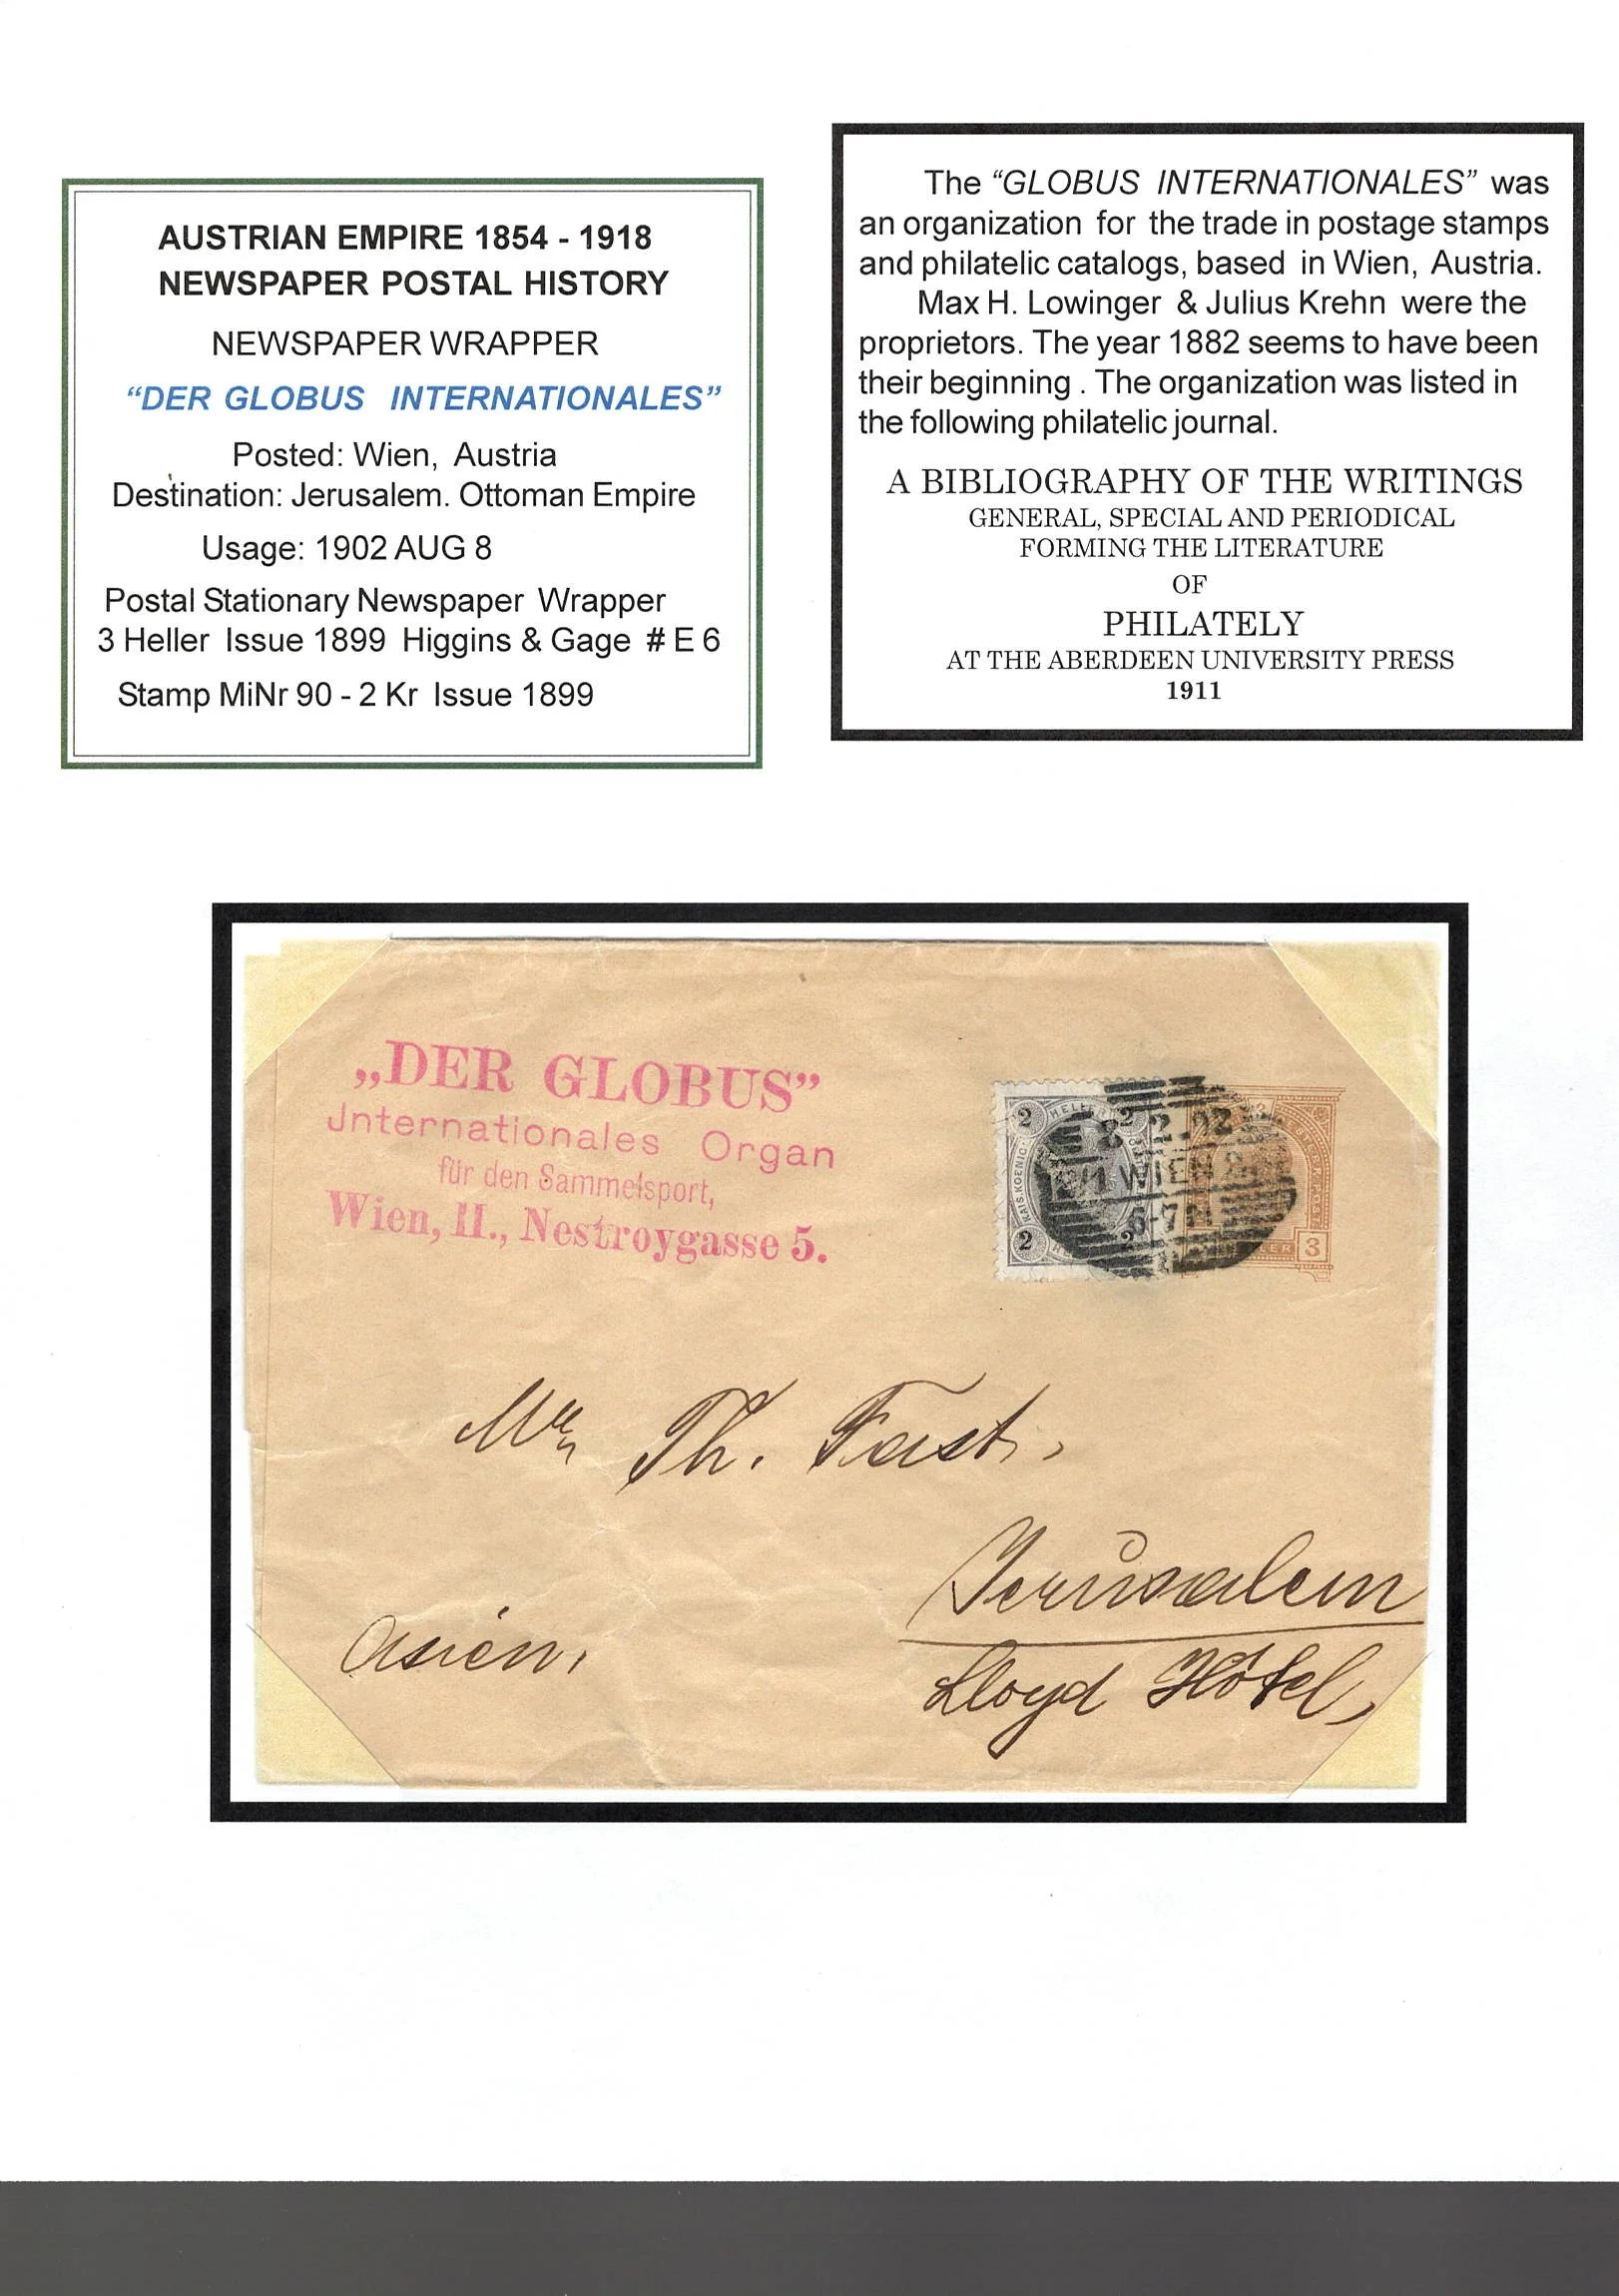 AUSTRIAN EMPIRE 1854 - 1918
NEWSPAPER POSTAL HISTORY
NEWSPAPER WRAPPER
“DER GLOBUS INTERNATIONALES”
Posted: Wien, Austria
Destination: Jerusalem. Ottoman Empire
Usage: 1902 AUG 8
Postal Stationary Newspaper Wrapper
3 Heller Issue 1899 Higgins & Gage # E 6
Stamp MiNr 90 - 2 Kr Issue 1899
The “GLOBUS INTERNATIONALES” was
an organization for the trade in postage stamps
and philatelic catalogs, based in Wien, Austria.
Max H. Lowinger & Julius Krehn were the
proprietors. The year 1882 seems to have been
their beginning . The organization was listed in
the following philatelic journal.
A BIBLIOGRAPHY OF THE WRITINGS
GENERAL, SPECIAL AND PERIODICAL
FORMING THE LITERATURE
OF
PHILATELY
AT THE ABERDEEN UNIVERSITY PRESS
1911
„DER GLOBUS”
Jnternationales Organ
für den Sammelsport,
Wien, II., Nestroygasse 5.
2 HELLER 2
KAIS. KOENIG.
2 2
WIEN
3
Th. Fast,
Jerusalem
Lloyd Hôtel,
Asien,